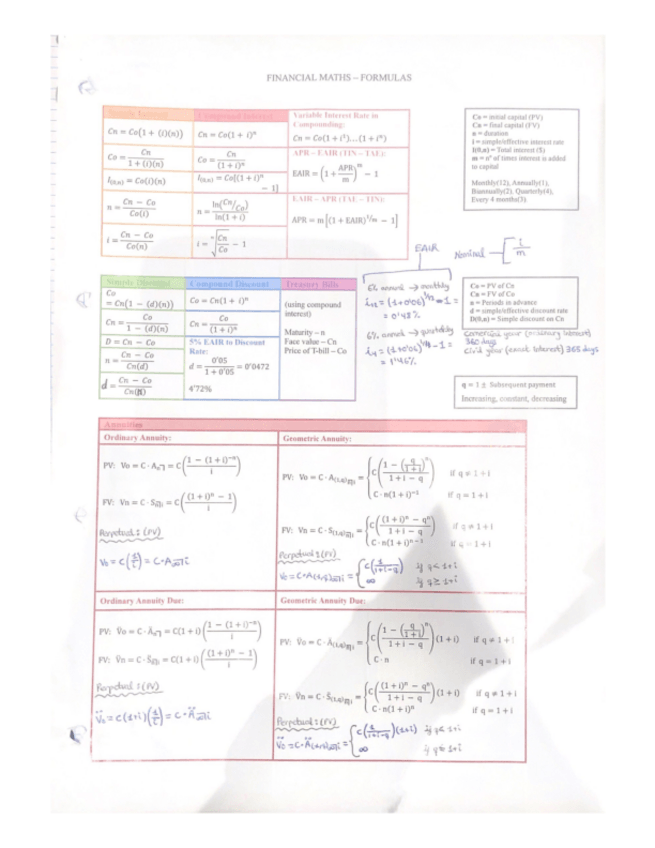 FINANCIAL MATHS – FORMULAS
Simple Interest
Compound Interest
Variable Interest Rate in Compounding:
Cn = Co(1 + (i)(n))
Cn = Co(1 + i)^n
Cn = Co(1 + i¹)...(1 + iⁿ)
Co = Cn / 1 + (i)(n)
Co = Cn / (1 + i)^n
APR – EAIR (TIN – TAE):
EAIR = (1 + APR/m)^m − 1
I(0,n) = Co(i)(n)
I(0,n) = Co[(1 + i)^n − 1]
n = Cn − Co / Co(i)
n = ln(Cn/Co) / ln(1 + i)
EAIR – APR (TAE – TIN):
APR = m[(1 + EAIR)^1/m − 1]
i = Cn − Co / Co(n)
i = ⁿ√(Cn/Co) − 1
Co = initial capital (PV)
Cn = final capital (FV)
n = duration
i = simple/effective interest rate
I(0,n) = Total interest ($)
m = nº of times interest is added to capital
Monthly(12), Annually(1),
Biannually(2), Quarterly(4),
Every 4 months(3)
EAIR
Nominal → [ i/m
Simple Discount
Compound Discount
Treasury Bills
Co = Cn(1 − (d)(n))
Co = Cn(1 + i)^n
(using compound interest)
Cn = Co / 1 − (d)(n)
Cn = Co / (1 + i)^n
Maturity – n
Face value – Cn
Price of T-bill – Co
D = Cn − Co
5% EAIR to Discount Rate:
n = Cn − Co / Cn(d)
d = 0'05 / 1 + 0'05 = 0'0472
d = Cn − Co / Cn(n)
4'72%
6% annual → monthly
i₁₂ = (1+0'06)^1/12 − 1 =
= 0'48%
6% annual → quarterly
i₄ = (1+0'06)^1/4 − 1 =
= 1'46%
Co = PV of Co
Cn = FV of Co
n = Periods in advance
d = simple/effective discount rate
D(0,n) = Simple discount on Cn
Comercial year (ordinary interest)
360 days
Civil year (exact interest) 365 days
q = 1 ± Subsequent payment
Increasing, constant, decreasing
Annuities
Ordinary Annuity:
PV: Vo = C · Aₙ⅂ = C(1 − (1 + i)^−n / i)
FV: Vn = C · Sₙ⅂ᵢ = C((1 + i)^n − 1 / i)
Perpetual: (PV)
V₀ = C(1/i) = C·A∞⅂i
Geometric Annuity:
PV: Vo = C · A(1,q)ₙ⅂ᵢ = { C(1 − (q/1+i)^n / 1 + i − q) if q ≠ 1 + i
C · n(1 + i)^−1 if q = 1 + i
FV: Vn = C · S(1,q)ₙ⅂ᵢ = { C((1 + i)^n − q^n / 1 + i − q) if q ≠ 1 + i
C · n(1 + i)^n−1 if q = 1 + i
Perpetual: (PV)
V₀ = C·A(1,q)∞⅂i = { C(1/1+i−q) if q < 1+i
∞ if q ≥ 1+i
Ordinary Annuity Due:
PV: V̈o = C · Äₙ⅂ = C(1 + i)(1 − (1 + i)^−n / i)
FV: V̈n = C · S̈ₙ⅂ᵢ = C(1 + i)((1 + i)^n − 1 / i)
Perpetual: (PV)
V̈₀ = C(1+i)(1/i) = C·Ä∞⅂i
Geometric Annuity Due:
PV: V̈o = C · Ä(1,q)ₙ⅂ᵢ = { C(1 − (q/1+i)^n / 1 + i − q)(1 + i) if q ≠ 1 + i
C · n if q = 1 + i
FV: V̈n = C · S̈(1,q)ₙ⅂ᵢ = { C((1 + i)^n − q^n / 1 + i − q)(1 + i) if q ≠ 1 + i
C · n(1 + i)^n if q = 1 + i
Perpetual: (PV)
V̈₀ = C·Ä(1,q)∞⅂i = { C(1/1+i−q)(1+i) if q < 1+i
∞ if q ≥ 1+i